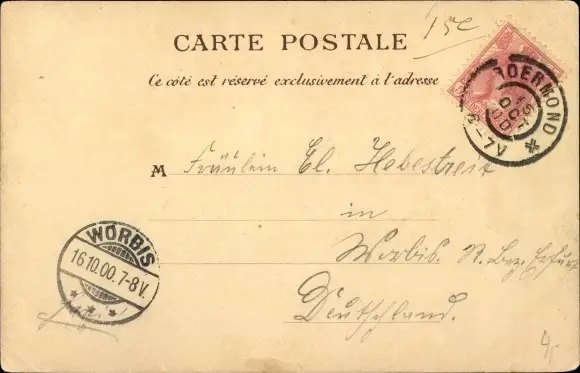 15c
CARTE POSTALE
Ce côté est réservé exclusivement à l'adresse
ROERMOND
15 OCT 00
M Fräulein El. Hebestreit
in
Worbis. R. Bez. Erfurt
Deutschland.
WORBIS
16.10.00.7-8V.
4,-